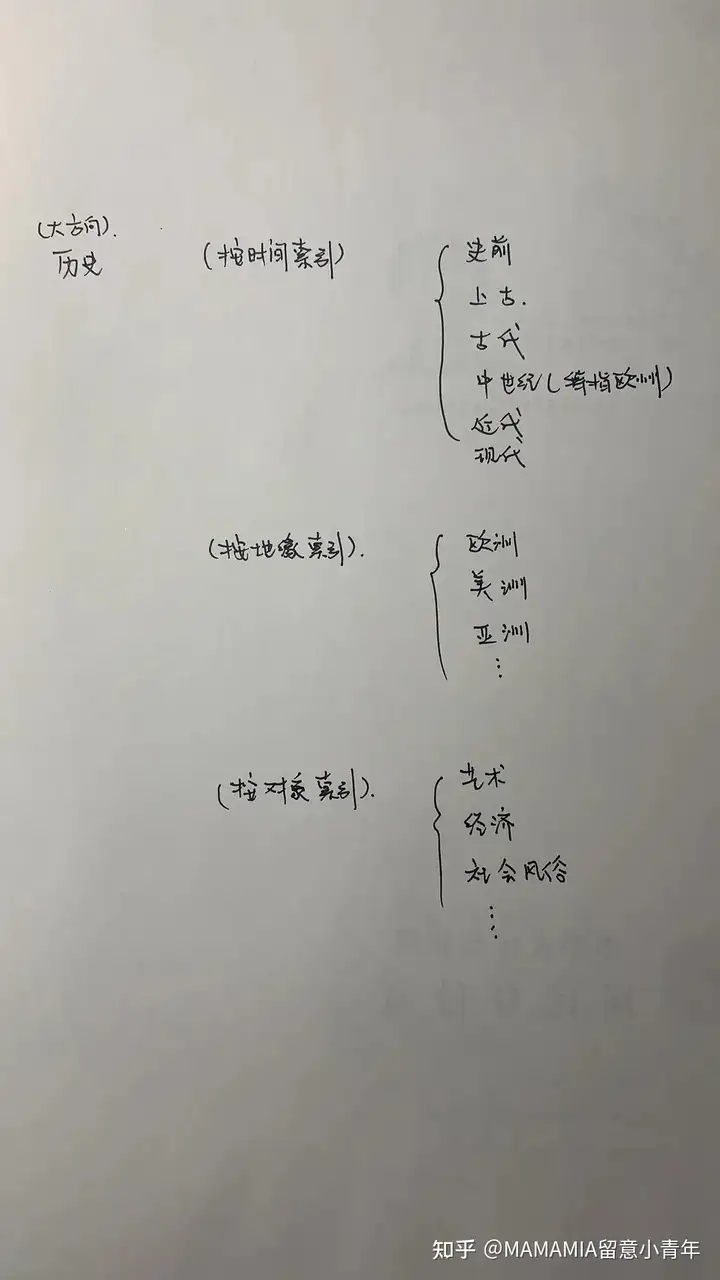 (大方向).
历史
(按时间索引)
史前
上古.
古代
中世纪(特指欧洲)
近代
现代
(按地域索引).
欧洲
美洲
亚洲
⋮
(按对象索引).
艺术
经济
社会风俗
⋮
知乎 @MAMAMIA留意小青年